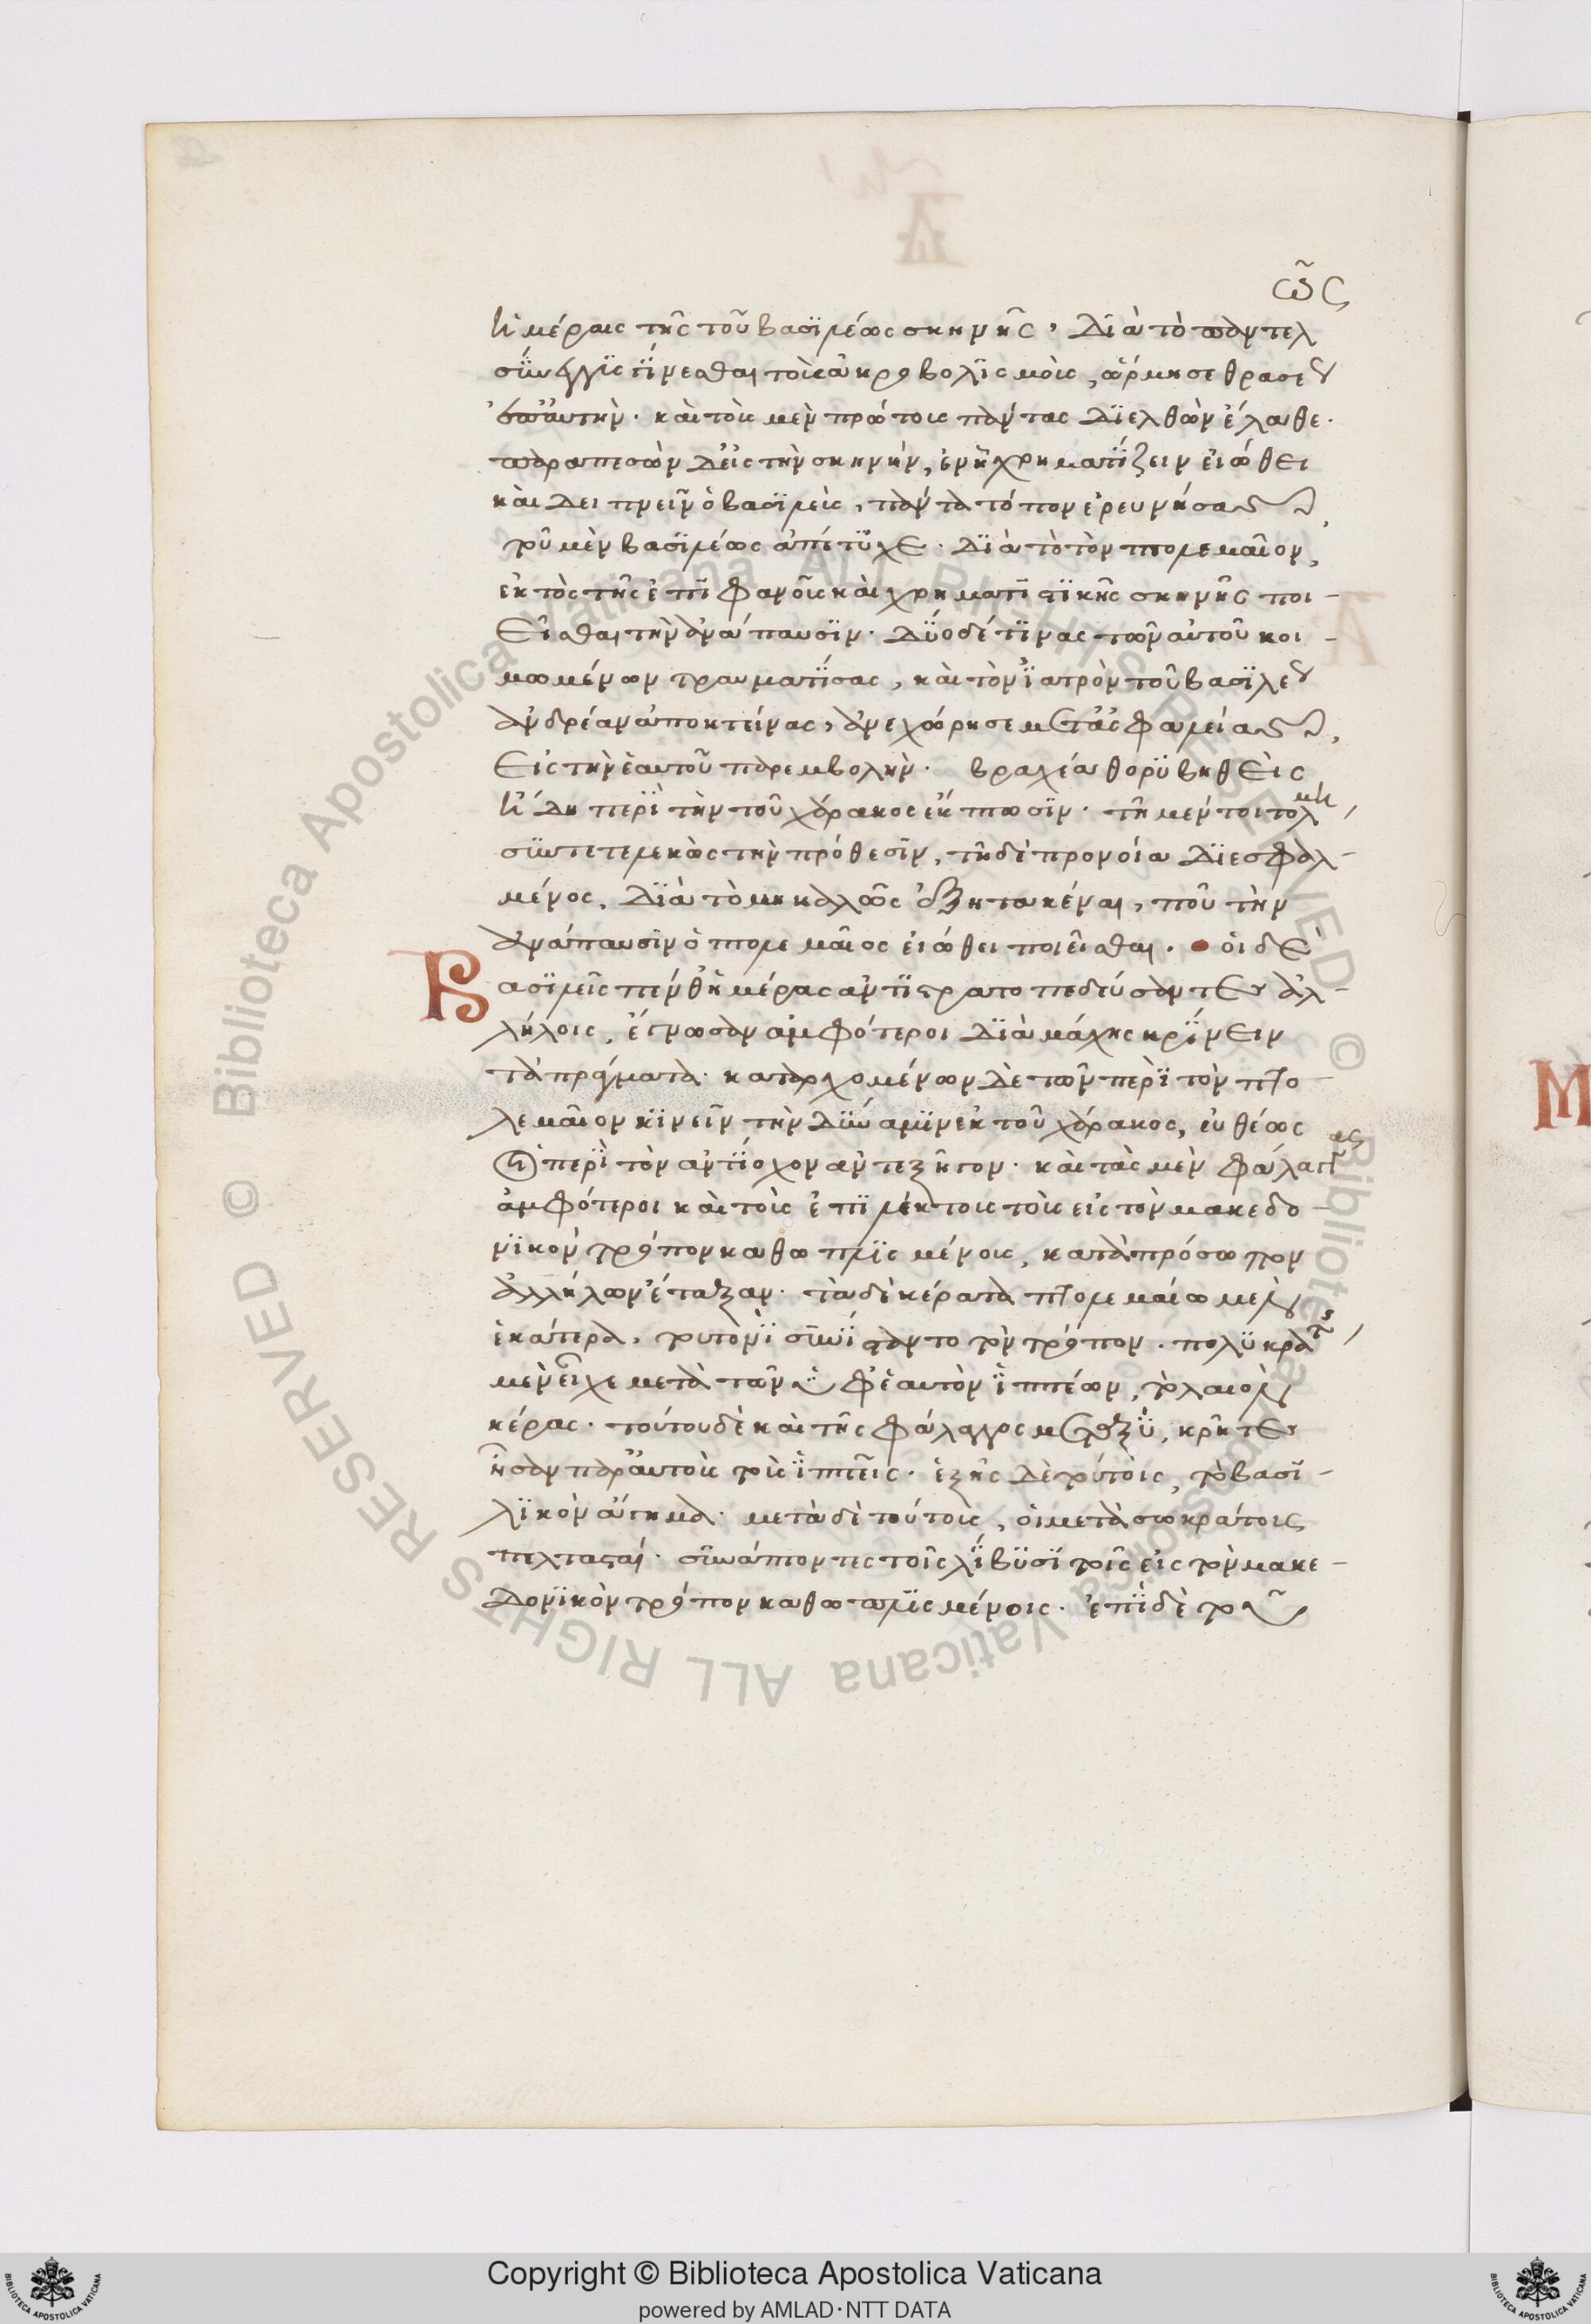 ὡς
ἡμέραις τῆς τοῦ βασιλέως σκηνῆς, διὰ τὸ παντελῶς
σύνεγγυς γίνεσθαι τοῖς ἀκροβολισμοῖς, ὥρμησε θρασέως
ἐπ' αὐτὴν. καὶ τοὺς μὲν πρώτους πάντας διελθὼν ἔλαθε.
παραπεσὼν δ' εἰς τὴν σκηνὴν, ἐν ᾗ χρηματίζειν εἰώθει
καὶ δειπνεῖν ὁ βασιλεὺς, πάντα τόπον ἐρευνήσας
τοῦ μὲν βασιλέως ἀπέτυχε. διὰ τὸ τὸν πτολεμαῖον,
ἐκτὸς τῆς ἐπιφανοῦς καὶ χρηματιστικῆς σκηνῆς ποι-
εῖσθαι τὴν ἀνάπαυσιν. δύο δέ τινας τῶν αὐτοῦ κοι-
μωμένων τραυματίσας, καὶ τὸν ἰατρὸν τοῦ βασιλέως
ἀνδρέαν ἀποκτείνας, ἀνεχώρησε μετ' ἀσφαλείας,
εἰς τὴν ἑαυτοῦ παρεμβολὴν. βραχέα θορυβηθεὶς
ἤδη περὶ τὴν τοῦ χάρακος ἔκπτωσιν. τῇ μέντοι τόλμῃ,
συντετελεκὼς τὴν πρόθεσιν, τῇ δὲ προνοίᾳ διεσφαλ-
μένος, διὰ τὸ μὴ καλῶς ἐξητακέναι, ποῦ τὴν
ἀνάπαυσιν ὁ πτολεμαῖος εἰώθει ποιεῖσθαι. οἱ δὲ
Βασιλεῖς πένθ' ἡμέρας ἀντιστρατοπεδεύσαντες ἀλ-
λήλοις, ἔγνωσαν ἀμφότεροι διὰ μάχης κρίνειν
τὰ πράγματα. καταρχομένων δὲ τῶν περὶ τὸν πτο-
λεμαῖον κινεῖν τὴν δύναμιν ἐκ τοῦ χάρακος, εὐθέως
οἱ περὶ τὸν ἀντίοχον ἀντεξῆγον. καὶ τὰς μὲν φάλαγγας
ἀμφότεροι καὶ τοὺς ἐπιλέκτους τοὺς εἰς τὸν μακεδο-
νικὸν τρόπον καθωπλισμένους, κατὰ πρόσωπον
ἀλλήλων ἔταξαν. τὰ δὲ κέρατα πτολεμαίω μὲν
ἑκάτερα, τοῦτον συνίσταντο τὸν τρόπον. πολυκράτης,
μὲν εἶχε μετὰ τῶν ὑφ' ἑαυτὸν ἱππέων, τὸ λαιὸν
κέρας. τούτου δὲ καὶ τῆς φάλαγγος μεταξὺ, κρῆτες
ἦσαν παρ' αὐτοὺς τοὺς ἱππεῖς. ἑξῆς δὲ τούτοις, τὸ βασι-
λικὸν ἄγημα. μετὰ δὲ τούτους, οἱ μετὰ σωκράτους
πελτασταί. συνάπτοντες τοῖς λίβυσι τοῖς εἰς τὸν μακε-
δονικὸν τρόπον καθωπλισμένοις. ἐπὶ δὲ τοῦ
Copyright © Biblioteca Apostolica Vaticana
powered by AMLAD·NTT DATA